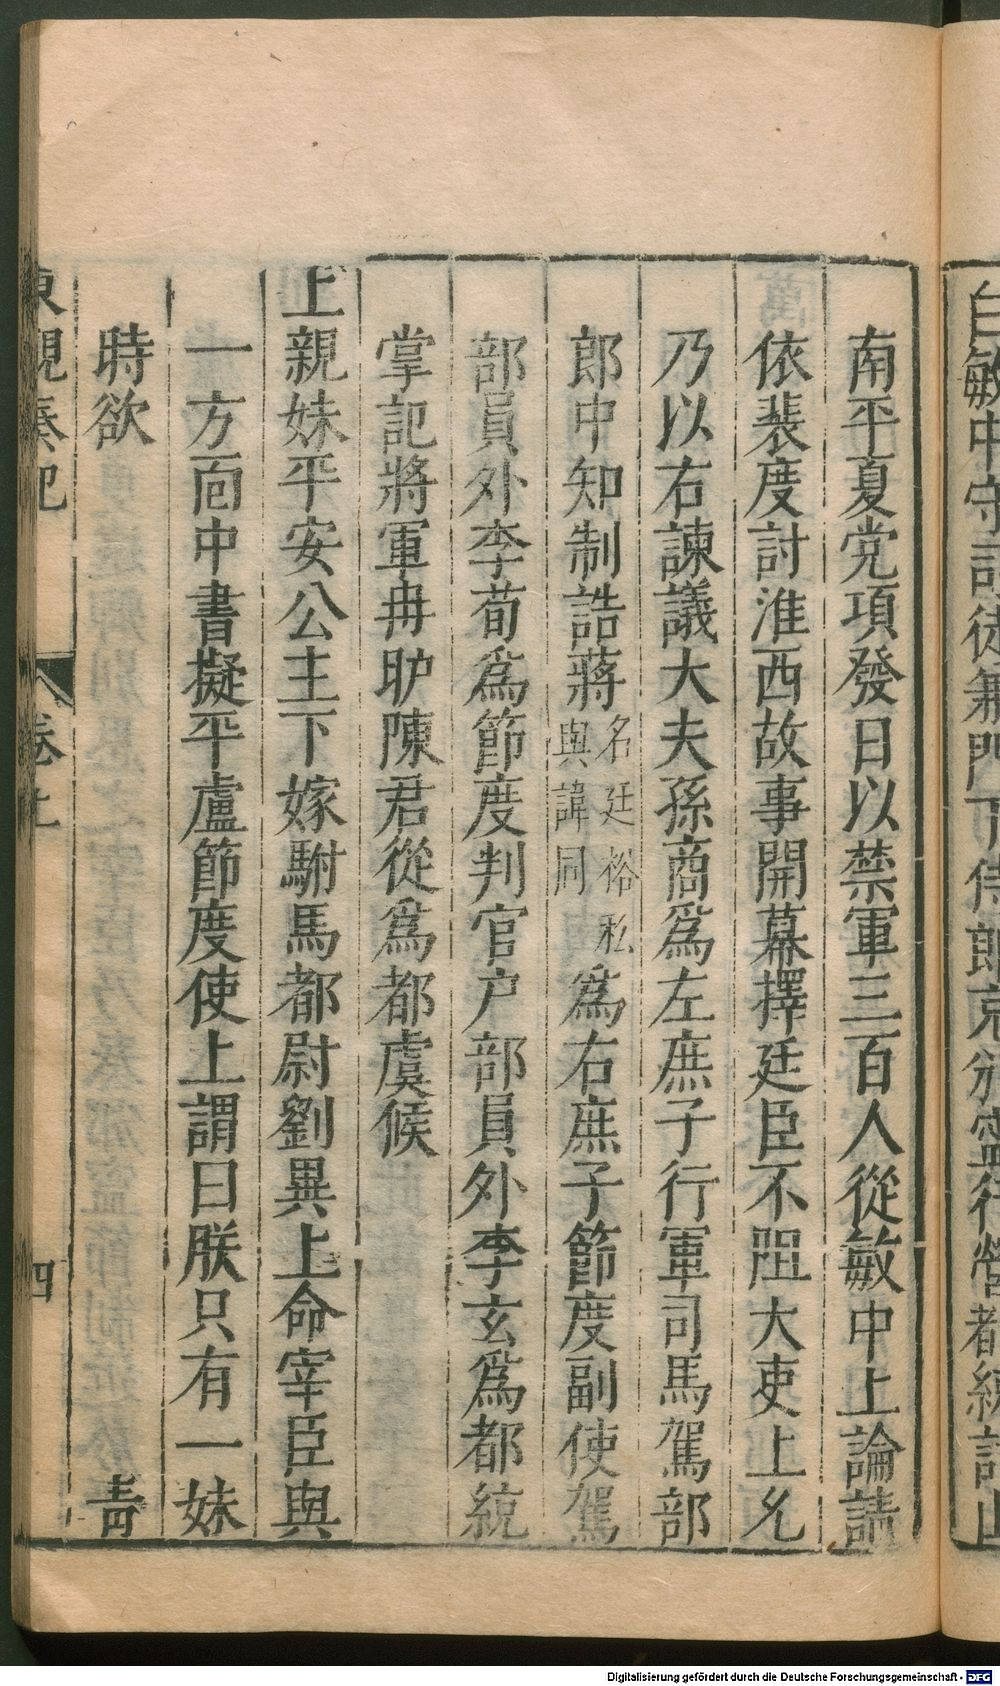 白敏中守司徒兼門下侍郎充邠寧行營都統討山
南平夏党項發日以禁軍三百人從敏中上論請
依裴度討淮西故事開幕擇廷臣不阻大吏上允
乃以右諫議大夫孫商爲左庶子行軍司馬駕部
郎中知制誥蔣名廷裕私與諱同爲右庶子節度副使駕
部員外李荀爲節度判官户部員外李玄爲都統
掌記將軍冉昈陳君從爲都虞候
上親妹平安公主下嫁駙馬都尉劉異上命宰臣與
一方面中書擬平盧節度使上謂曰朕只有一妹
時欲 青
東觀奏記 卷上 四
Digitalisierung gefördert durch die Deutsche Forschungsgemeinschaft - DFG